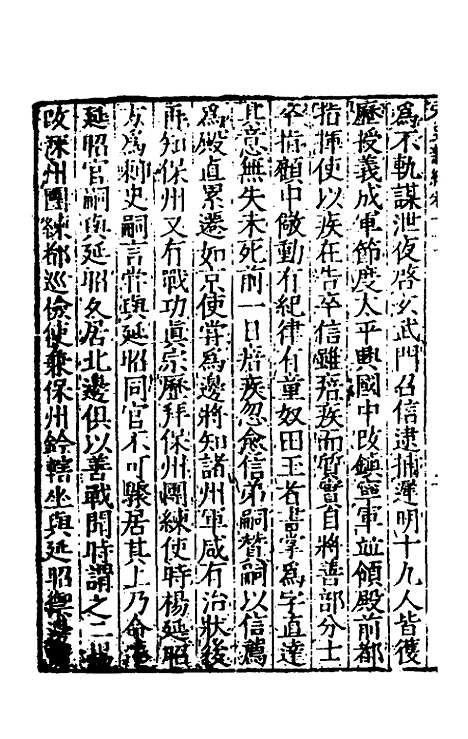 為不軌謀泄夜啓玄武門召信逮捕遲明十九人皆獲
歷授義成軍節度太平興國中改鎮寧軍並領殿前都
指揮使以疾在告卒信雖瘖疾而質實自將善部分士
卒指顧中儆動有紀律有童奴田玉者書掌為字直達
其意無失未死前一日瘖疾忽愈信弟嗣贊嗣以信薦
為殿直累遷如京使嘗為邊將知諸州軍咸有治狀後
再知保州又有戰功真宗歷拜保州團練使時楊延昭
方為刺史嗣言嘗與延昭同官不可驟居其上乃命
延昭官嗣與延昭久居北邊俱以善戰聞時謂之二
改深州團練都巡檢使兼保州鈐轄坐與延昭